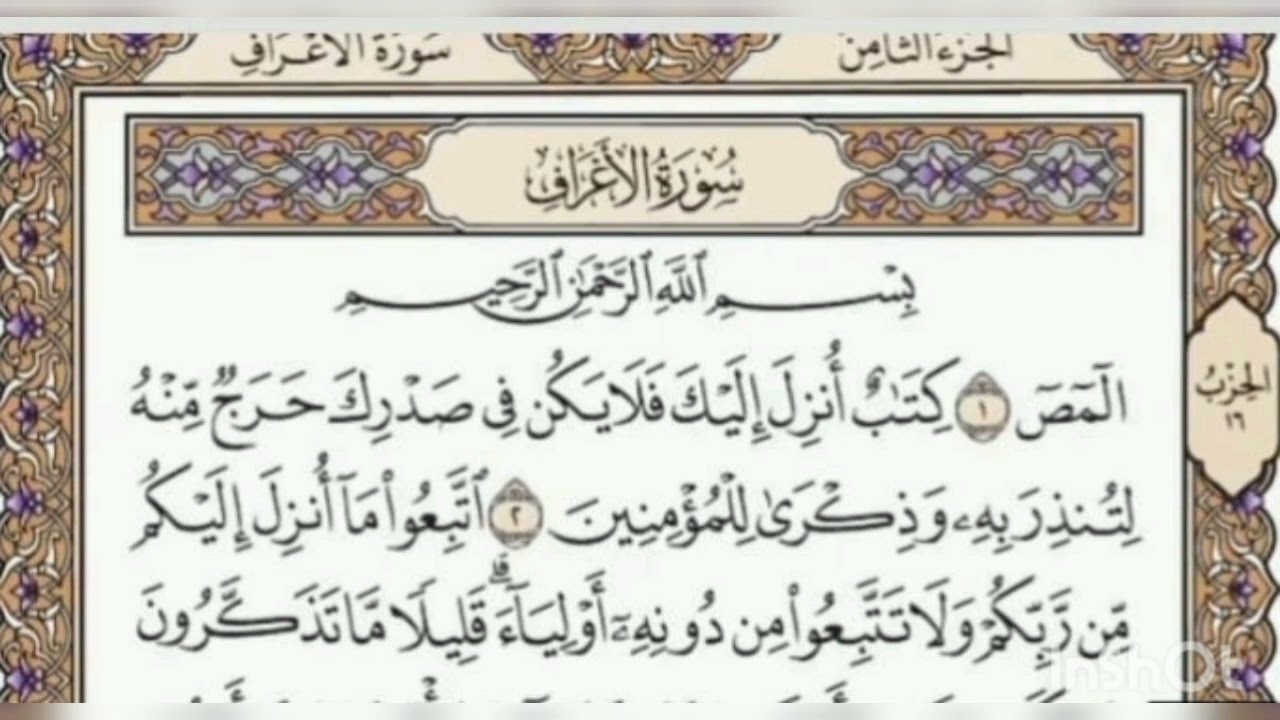 الجزء الثامن
سورة الأعراف
سُورَةُ الأَعْرَافِ
بِسْمِ ٱللَّهِ ٱلرَّحْمَٰنِ ٱلرَّحِيمِ
الٓمٓصٓ ١ كِتَٰبٌ أُنزِلَ إِلَيْكَ فَلَا يَكُن فِى صَدْرِكَ حَرَجٌ مِّنْهُ
لِتُنذِرَ بِهِۦ وَذِكْرَىٰ لِلْمُؤْمِنِينَ ٢ ٱتَّبِعُوا۟ مَآ أُنزِلَ إِلَيْكُم
مِّن رَّبِّكُمْ وَلَا تَتَّبِعُوا۟ مِن دُونِهِۦٓ أَوْلِيَآءَ ۗ قَلِيلًا مَّا تَذَكَّرُونَ
الحِزْبُ
١٦
InShOt